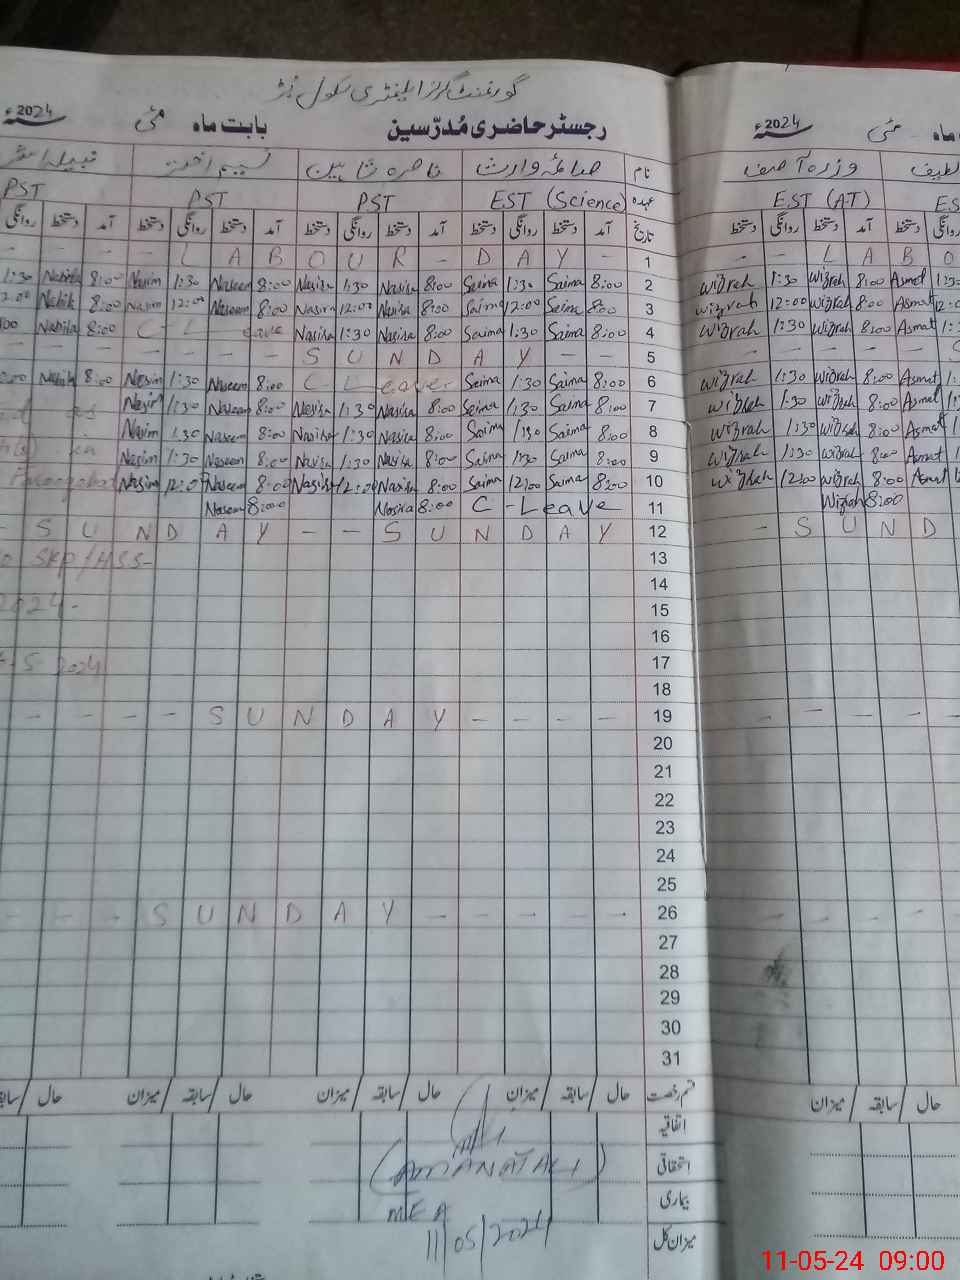 گورنمنٹ گرلز ایلیمنٹری سکول
رجسٹر حاضری مُدرّسین بابت ماہ مئی 2024ء
ماہ مئی 2024ء
نام صائمہ وارث ناصرہ شاہین نسیم اختر نبیلہ
وزرہ آصف لطیف
عہدہ EST (Science) PST PST PST
EST (AT)
تاریخ آمد دستخط روانگی دستخط آمد دستخط روانگی دستخط آمد دستخط روانگی دستخط آمد دستخط روانگی
دستخط روانگی دستخط آمد دستخط روانگی
- - - - L A B O U R - D A Y - 1 - - L A B O
1:30 Nabila 8:00 Nasim 1:30 Naseem 8:00 Nasira 1:30 Nasira 8:00 Saima 1:30 Saima 8:00 2 Wizrah 1:30 Wizrah 8:00 Asmat
12:00 Nabila 8:00 Nasim 12:00 Naseem 8:00 Nasira 12:00 Nasira 8:00 Saima 12:00 Saima 8:00 3 Wizrah 12:00 Wizrah 8:00 Asmat
Nabila 8:00 C-Leave Nasira 1:30 Nasira 8:00 Saima 1:30 Saima 8:00 4 Wizrah 1:30 Wizrah 8:00 Asmat
- - - - - - - S U N D A Y - - 5 - - - - -
Nabila 8:00 Nasim 1:30 Naseem 8:00 C-Leave Saima 1:30 Saima 8:00 6 Wizrah 1:30 Wizrah 8:00 Asmat
Nasim 1:30 Naseem 8:00 Nasira 1:30 Nasira 8:00 Saima 1:30 Saima 8:00 7 Wizrah 1:30 Wizrah 8:00 Asmat
Nasim 1:30 Naseem 8:00 Nasira 1:30 Nasira 8:00 Saima 1:30 Saima 8:00 8 Wizrah 1:30 Wizrah 8:00 Asmat
Nasim 1:30 Naseem 8:00 Nasira 1:30 Nasira 8:00 Saima 1:30 Saima 8:00 9 Wizrah 1:30 Wizrah 8:00 Asmat
Nasim 12:00 Naseem 8:00 Nasira 12:00 Nasira 8:00 Saima 12:00 Saima 8:00 10 Wizrah 12:00 Wizrah 8:00 Asmat
Naseem 8:00 Nasira 8:00 C-Leave 11 Wizrah 8:00
- S U N D A Y - - S U N D A Y 12 - S U N D
SKP/HSS- 13
14
2024- 15
16
5 2024 17
18
- - - - S U N D A Y - - - - 19 - - - - -
20
21
22
23
24
25
- - - S U N D A Y - - - - - 26 - - - - -
27
28
29
30
31
قسم رخصت حال / سابقہ / میزان حال / سابقہ / میزان حال / سابقہ / میزان حال / سابقہ
حال / سابقہ / میزان
اتفاقیہ
استحقاقی
(AMANAT ALI)
بیماری
MEA
میزان کل
11/05/2024
11-05-24 09:00